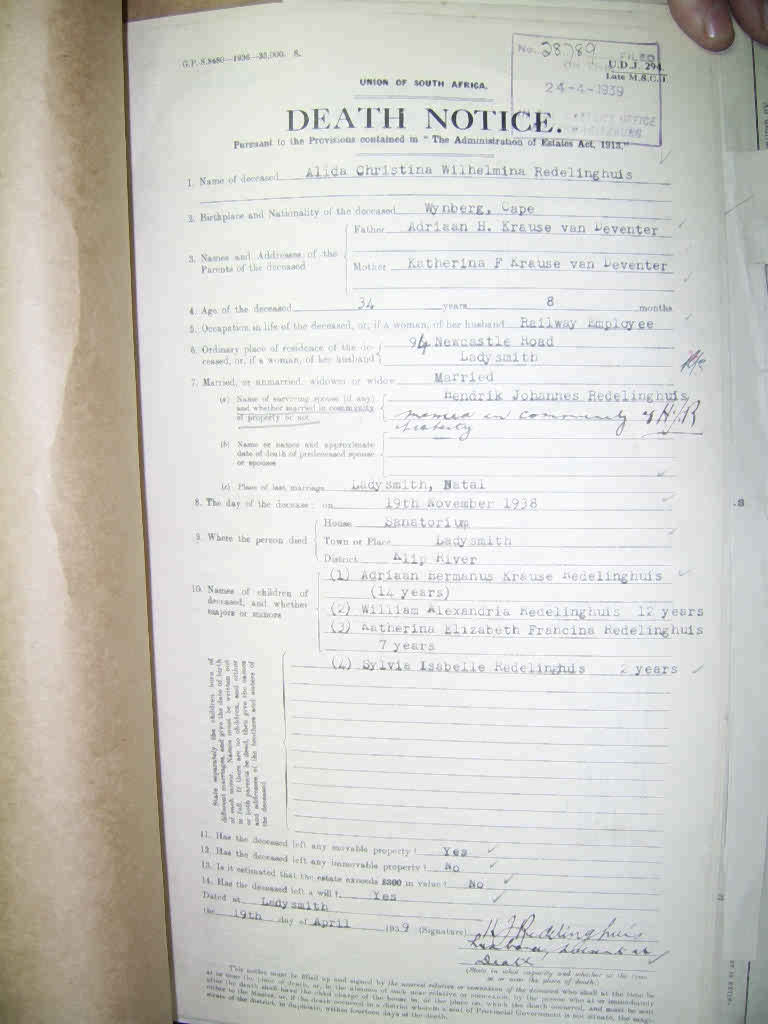 G.P. S.8480—1936—35,000. S.
No. 28789 FILED
U.D.J. 294.
Late M.S.C.J.
24-4-1939
OFFICE
UNION OF SOUTH AFRICA.
DEATH NOTICE.
Pursuant to the Provisions contained in "The Administration of Estates Act, 1913."
1. Name of deceased Alida Christina Wilhelmina Redelinghuis
2. Birthplace and Nationality of the deceased Wynberg, Cape
3. Names and Addresses of the Parents of the deceased
Father Adriaan H. Krause van Deventer
Mother Katherina F Krause van Deventer
4. Age of the deceased 34 years 8 months
5. Occupation in life of the deceased, or, if a woman, of her husband Railway Employee
6. Ordinary place of residence of the de-
ceased, or, if a woman, of her husband
94 Newcastle Road
Ladysmith
7. Married, or unmarried, widower or widow Married
(a) Name of surviving spouse (if any)
and whether married in community
of property or not
Hendrik Johannes Redelinghuis
married in community of HJR
property
(b) Name or names and approximate
date of death of predeceased spouse
or spouses
(c) Place of last marriage Ladysmith, Natal
8. The day of the decease: on 19th November 1938
9. Where the person died
House Sanatorium
Town or Place Ladysmith
District Klip River
10. Names of children of
deceased, and whether
majors or minors
(1) Adriaan Hermanus Krause Redelinghuis
(14 years)
(2) William Alexandria Redelinghuis 12 years
(3) Katherina Elizabeth Francina Redelinghuis
7 years
(4) Sylvia Isabelle Redelinghuis 2 years
State separately the children born of
different marriages, and give the date of birth
of each minor. Names must be written out
in full. If there are no children, and either
or both parents be dead, then give the names
and addresses of the brothers and sisters of
the deceased
11. Has the deceased left any movable property? Yes
12. Has the deceased left any immovable property? No
13. Is it estimated that the estate exceeds £300 in value? No
14. Has the deceased left a will? Yes
Dated at Ladysmith
the 19th day of April 1939 (Signature) HJ Redelinghuis
husband, present at
Death
(State in what capacity and whether at the time
at or near the place of death.)
This notice must be filled up and signed by the nearest relative or connection of the deceased who shall at the time be
at or near the place of death, or, in the absence of such near relative or connection, by the person who at or immediately
after the death shall have the chief charge of the house in, or the place on, which the death occurred, and must be sent